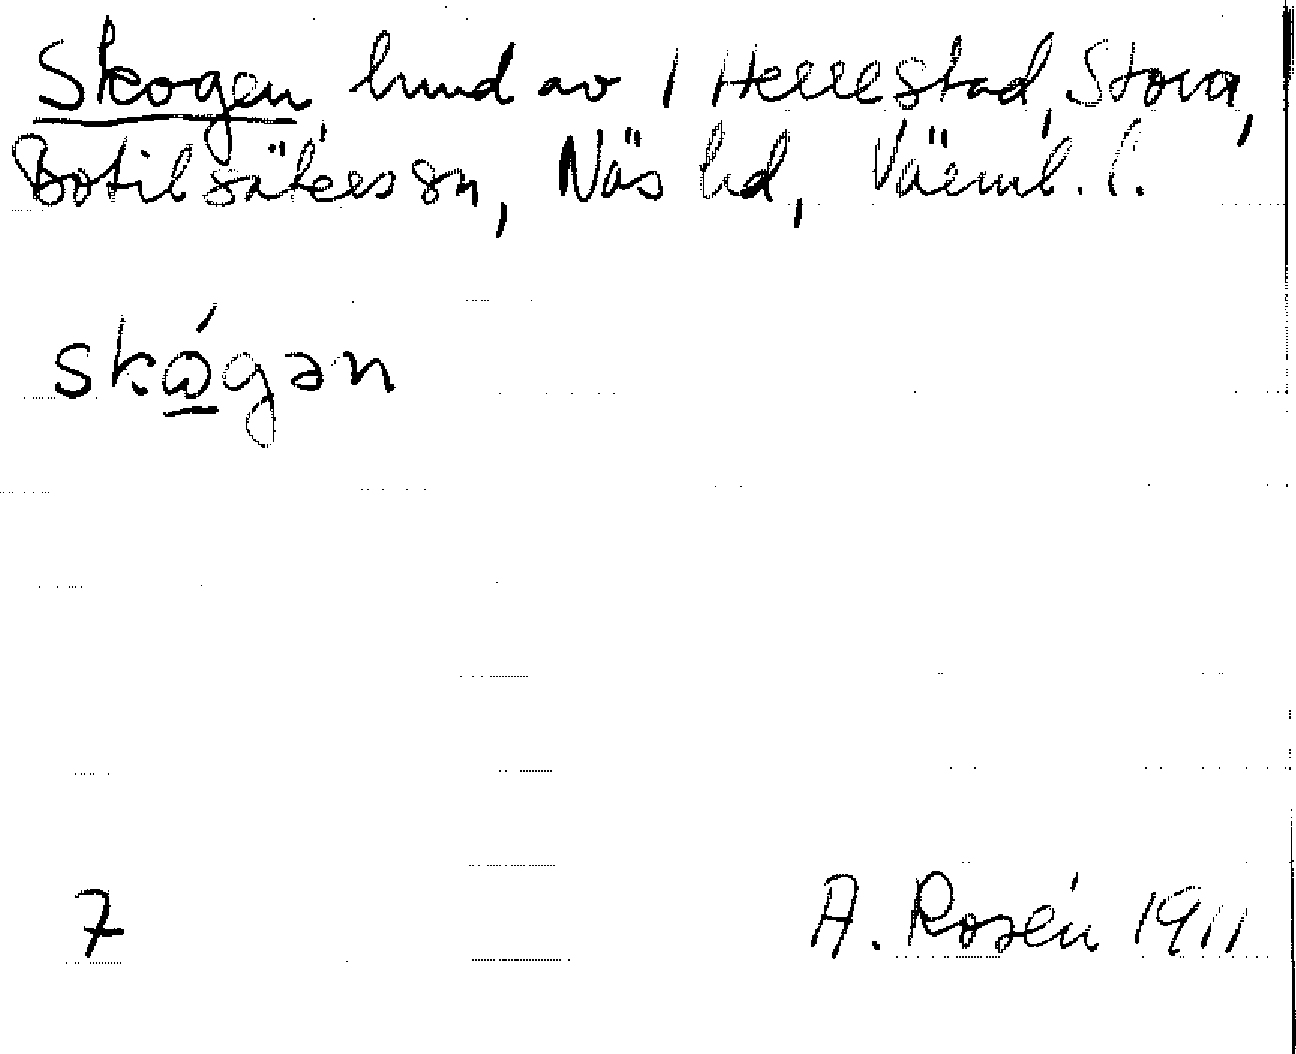 Skogen, hmd av 1 Herrestad, Stora,
Botilsäters sn, Näs hd, Värml. l.
skógən
7
A. Rosén 1911